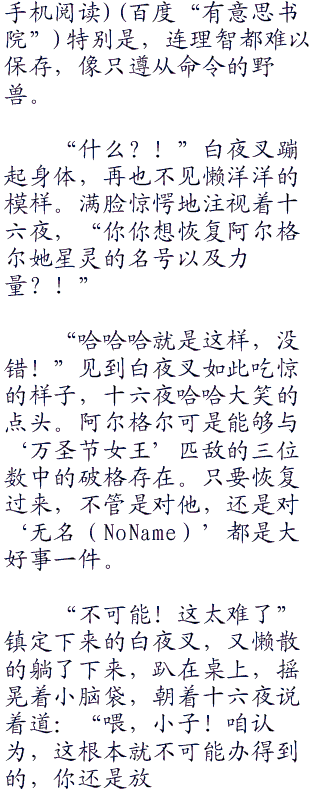 手机阅读)(百度“有意思书
院”)特别是，连理智都难以
保存，像只遵从命令的野
兽。
“什么？！”白夜叉蹦
起身体，再也不见懒洋洋的
模样。满脸惊愕地注视着十
六夜，“你你想恢复阿尔格
尔她星灵的名号以及力
量？！”
“哈哈哈就是这样，没
错！”见到白夜叉如此吃惊
的样子，十六夜哈哈大笑的
点头。阿尔格尔可是能够与
‘万圣节女王’匹敌的三位
数中的破格存在。只要恢复
过来，不管是对他，还是对
‘无名（NoName）’都是大
好事一件。
“不可能！这太难了”
镇定下来的白夜叉，又懒散
的躺了下来，趴在桌上，摇
晃着小脑袋，朝着十六夜说
着道：“喂，小子！咱认
为，这根本就不可能办得到
的，你还是放